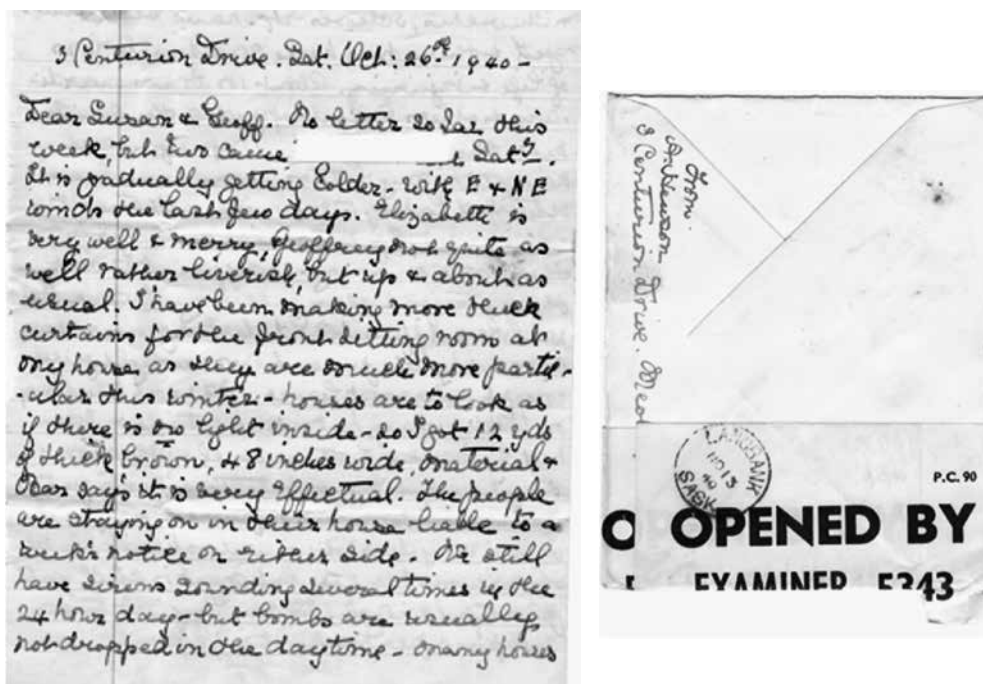 3 Centurion Drive. Sat. Oct: 26th 1940-
Dear Susan & Geoff. No letter so far this
week, but two came Saty.
It is gradually getting colder - with E & NE
winds the last few days. Elizabeth is
very well & merry, Geoffrey not quite as
well rather liverish, but up & about as
usual. I have been making more thick
curtains for the front sitting room at
my house as they are much more partic-
-ular this winter - houses are to look as
if there is no light inside - so I got 12 yds
of thick brown, 48 inches wide, material &
says it is very effectual. The people
are staying on in their house liable to a
week's notice on either side. We still
have sirens sounding several times in the
24 hour day - but bombs are usually
not dropped in the daytime - many houses
From
3 Centurion Drive. Meo
LANGBANK
NO 13
40
SASK
P.C. 90
OPENED BY
EXAMINER 5343